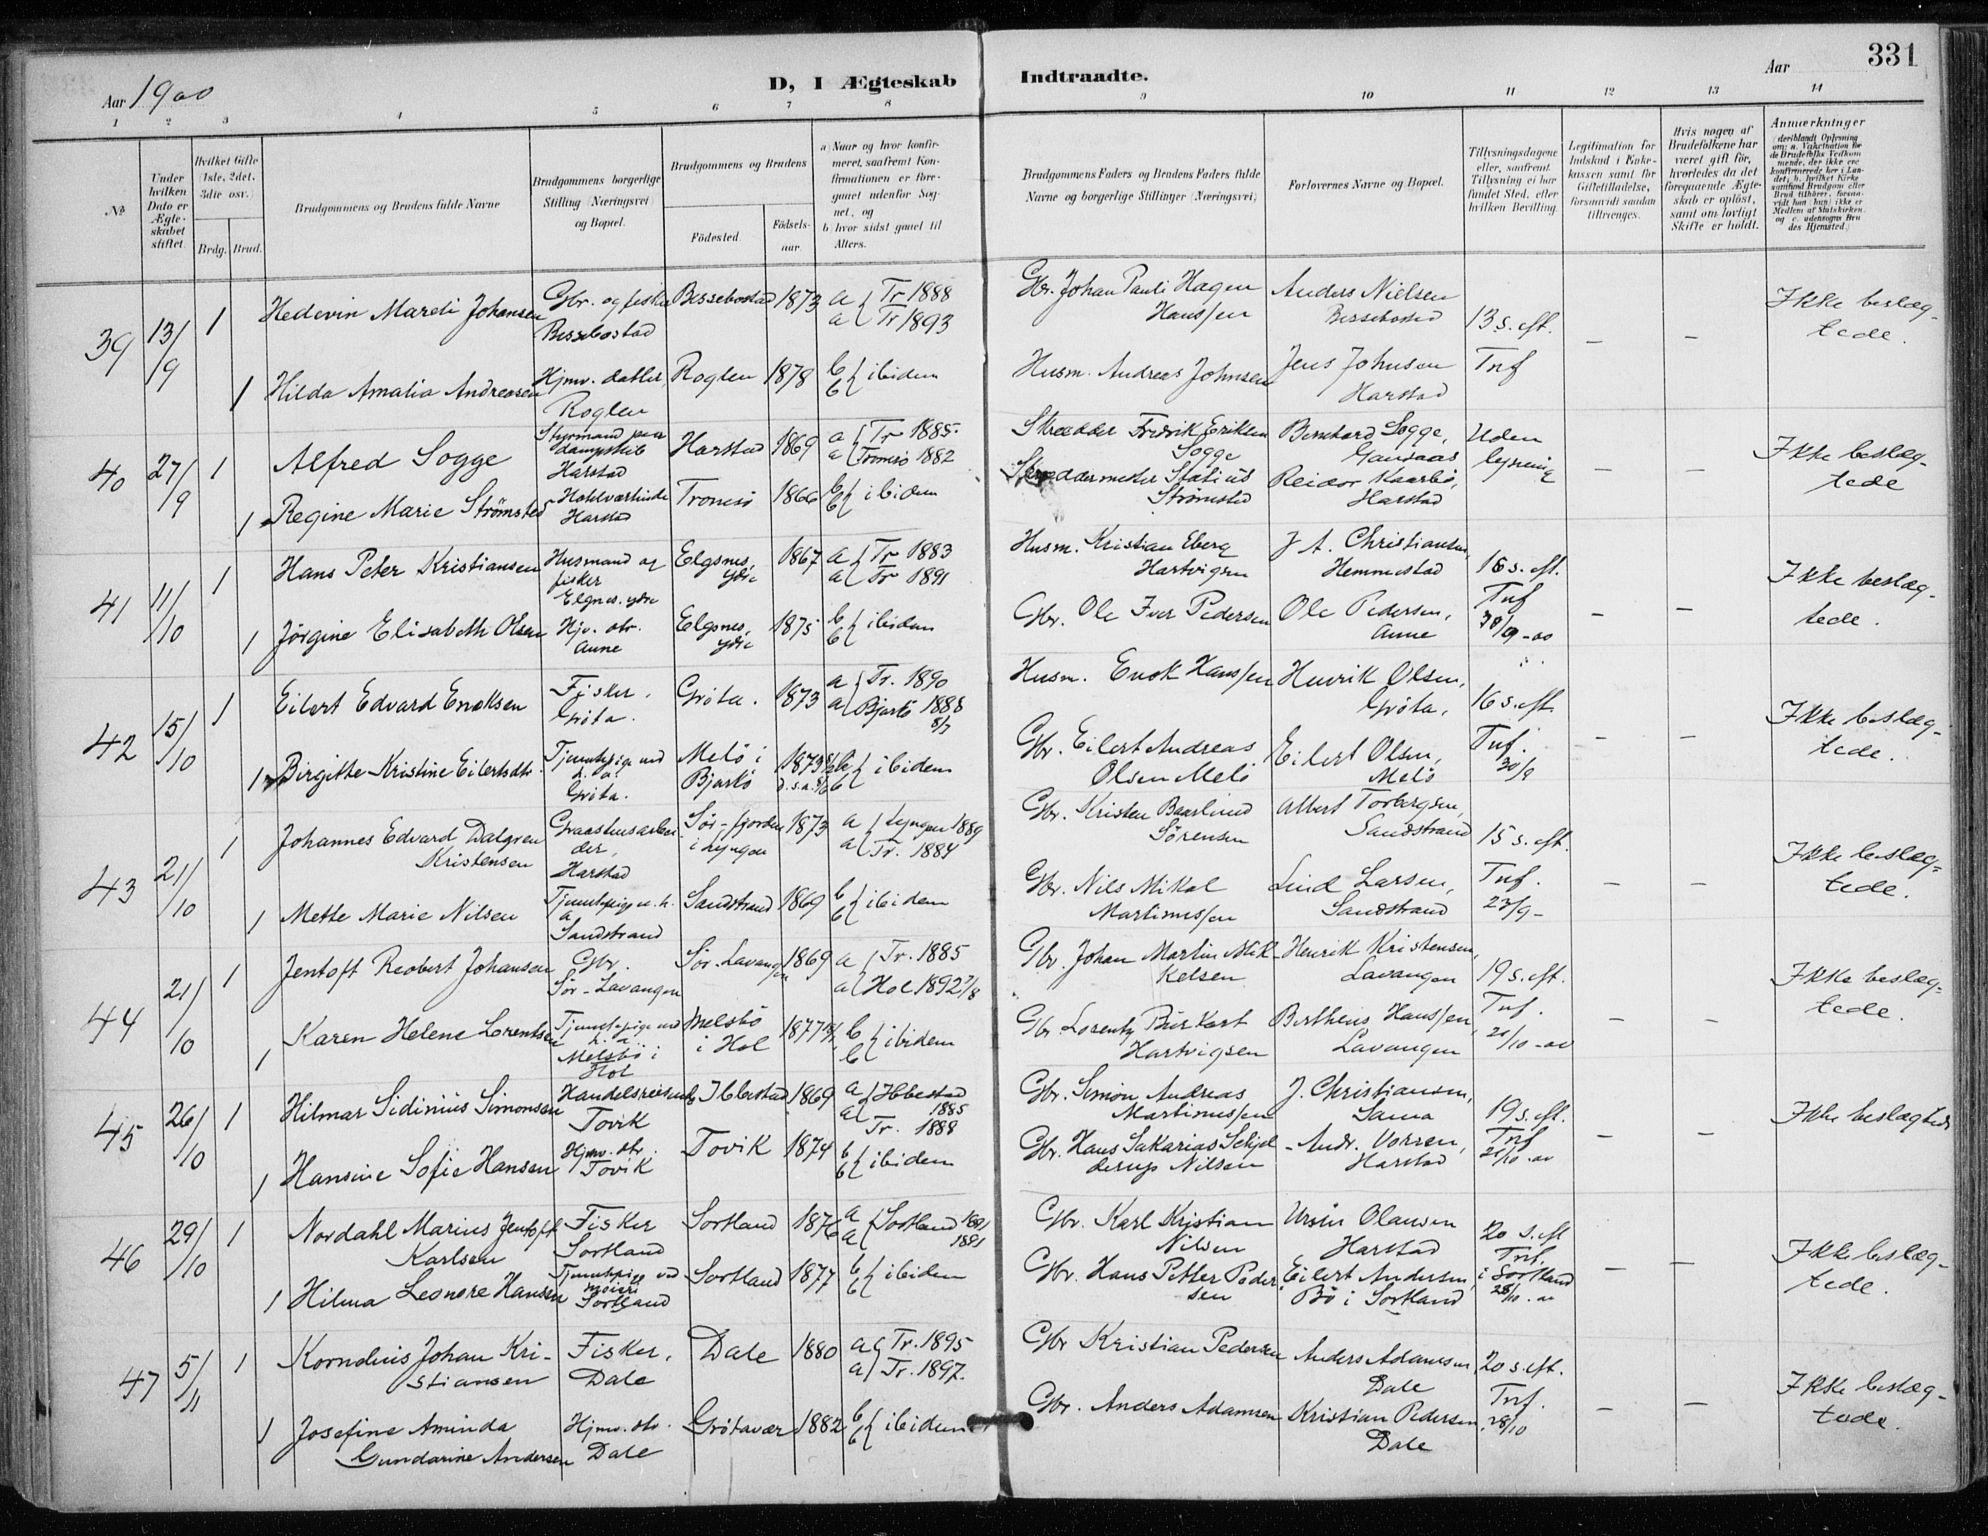 331
Aar 1900
D, I Ægteskab Indtraadte.
Aar
1 2 3 4 5 6 7 8 9 10 11 12 13 14
№
Under hvilken Dato er Ægteskabet stiftet
Hvilket Gifte (1ste, 2det, 3die osv.
Brdg. Brud.
Brudgommens og Brudens fulde Navne
Brudgommens borgerlige Stilling (Næringsvei) og Bopæl.
Brudgommens og Brudens
Fødested.
Fødselsaar.
a) Naar og hvor konfirmeret, saafremt Konfirmationen er foregaaet udenfor Sognet, og
b) hvor sidst gaaet til Alters.
Brudgommens Faders og Brudens Faders fulde Navne og borgerlige Stillinger (Næringsvei)
Forlovernes Navne og Bopæl.
Tillysningsdagene eller, saafremt Tillysning ei har fundet Sted, efter hvilken Bevilling.
Legitimation for Indskud i Enkekassen samt for Giftetilladelse, forsaavidt saadan tiltrænges.
Hvis nogen af Brudefolkene har været gift før, hvorledes da det foregaaende Ægteskab er opløst, samt om lovligt Skifte er holdt.
Anmærkninger
39 13/9 1 Hedevin Mareli Johansen Gbr. og fisker Bessebostad Bessebostad 1873 a Tr 1888 a Tr 1893 Gbr. Johan Pauli Hagen Hanssen Anders Nielsen Bessebostad 13 s. eft. Tnf – – Ikke beslægtede.
1 Hilda Amalia Andreasen Hjmv. datter Roglen Roglen 1878 b b ibidem Husm. Andreas Johnsen Jens Johnsen Harstad
40 27/9 1 Alfred Sogge Styrmand paa dampskib Harstad Harstad 1869 a Tr 1885. a Tromsø 1882 Skrædder Fredrik Eriksen Sogge Bernhard Sogge, Gansaas Uden lysning – – Ikke beslægtede
1 Regine Marie Strømsted Hotelværtinde Harstad Tromsø 1866 b b ibidem Skræddermester Statius Strømsted Reidar Kaarbø, Harstad
41 11/10 1 Hans Peter Kristiansen Husmand og fisker Elgnes. ydre Elgsnes, ydre 1867 a Tr 1883 a Tr 1891 Husm. Kristian Eberg Hartvigsen J A. Christiansen, Hemmestad 16 s. eft. Tnf 30/9-00 – – Ikke beslægtede.
1 Jørgine Elisabeth Olsen Hjv. dtr. Aune Elgsnes, ydre 1875 b b ibidem Gbr. Ole Iver Pedersen Ole Pedersen, Aune
42 15/10 1 Eilert Edvard Enoksen Fisker. Grøta. Grøta. 1873 a Tr. 1890 a Bjarkø 1888 8/7 Husm. Enok Hanssen Henrik Olsen, Grøta, 16 s. eft. Tnf. 30/9 – – Ikke beslægtede.
1 Birgitte Kristine Eilertsdtr. Tjenstepige ved Grøta. Melø i Bjarkø 1873 b ibidem Gbr. Eilert Andreas Olsen Melø Eilert Olsen, Melø
43 21/10 1 Johannes Edvard Dalgren Kristensen Graastensarbeider, Harstad Sør-fjorden i Lyngen 1873 a Lyngen 1889 a Tr. 1884 Gbr. Kristen Baarlund Sørensen Albert Torbergsen, Sandstrand 15 s. eft. Tnf. 23/9- – – Ikke beslægtede.
1 Mette Marie Nilsen Tjenstepige n. h. a Sandstrand Sandstrand 1869 b b ibidem Gbr. Nils Mikal Martinussen Lind Larsen, Sandstrand
44 21/10 1 Jentoft Reobert Johansen Gbr. Sør-Lavangen Sør-Lavangen 1869 a Tr. 1885 a Hol 1892 Gbr. Johan Martin Mikkelsen Henrik Kristensen, Lavangen 19 s. eft. Tnf. 21/10-00 Ikke beslægtede.
1 Karen Helene Lorentsen Tjenstepige ved Melsbø i Hol Melsbø i Hol 1877 b b ibidem Gbr. Lorentz Burkart Hartvigsen Bertheus Hanssen, Lavangen
45 26/10 1 Hilmar Sidinius Simonsen Handelsreisende Tovik Ibbestad 1869 a Ibbestad 1885 a Tr. 1888 Gbr. Simon Andreas Martinussen J. Christiansen, Sama 19 s. eft. Tnf 21/10-00 – – Ikke beslægtede
1 Hansine Sofie Hansen Hjmv. dtr. Tovik Tovik 1874 b b ibidem Gbr. Hans Sakarias Schjelderup Nilsen Andr. Vorren, Harstad
46 29/10 1 Nordahl Marius Jentoft Karlsen Fisker Sortland Sortland 1876 a a Sortland 1891 1891 Gbr. Karl Kristian Nilsen Ursin Olausen Harstad 20 s. eft Tnf. i Sortland 28/10.00 – – Ikke beslægtede.
1 Hilma Leonore Hansen Tjenstepige ved meieri Sortland Sortland 1877 b b ibidem Gbr. Hans Petter Pedersen Eilert Andersen, Bø i Sortland
47 5/11 1 Kornelius Johan Kristiansen Fisker, Dale Dale 1880 a Tr. 1895 a Tr. 1897. Gbr Kristian Pedersen Anders Adamsen, Dale 20 s. eft. Tnf. 28/10 – – Ikke beslægtede.
1 Josefine Aminda Gundarine Andersen Hjmv. dtr. Dale Grøtavær 1882 b b ibidem Gbr. Anders Adamsen Kristian Pedersen, Dale